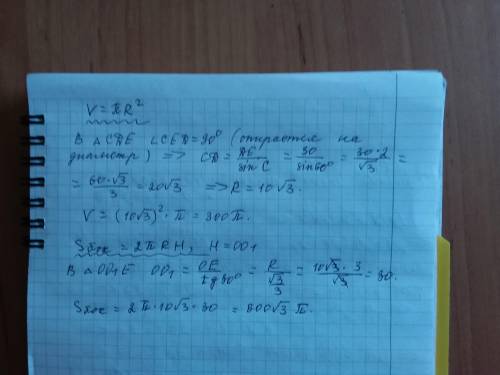 V = πR²
В △CDE ∠CED=90° (опирается на
диаметр) => CD = DE/sin C = 30/sin60° = 30·2/√3 =
= 60·√3/3 = 20√3 => R = 10√3.
V = (10√3)²·π = 300π.
Sбок = 2πRH, H=OO₁
В △OO₁E OO₁ = OE/tg30° = R/(√3/3) = 10√3·3/√3 = 30.
Sбок = 2π·10√3·30 = 600√3 π.